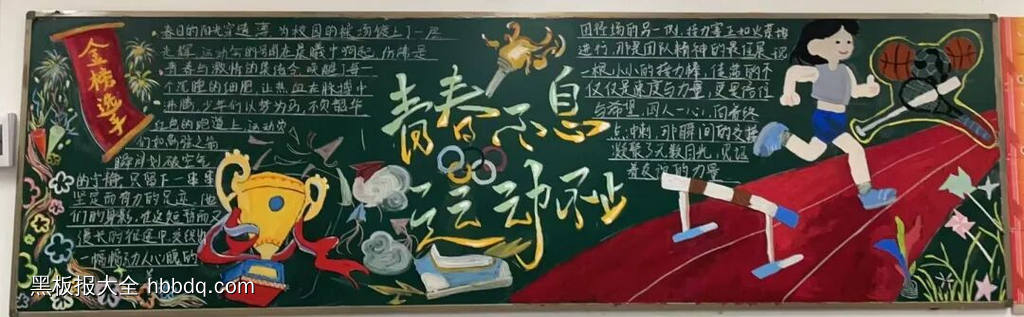 金榜选手
春日的阳光穿透云，为校园的操场镀上了一层
光辉，运动会的号角在晨曦中响起，仿佛是
青春与激情的集结令，唤醒了每一
个沉睡的细胞，让热血在脉搏中
沸腾，少年们以梦为马，不负韶华
红色的跑道上，运动员
们如离弦之箭
瞬间划破空气
的寂静，只留下一串串
坚定而有力的足迹，他
们的身影，在这短暂而又
漫长的征途中交织出
一幅幅动人心魄的
青春不息
运动不止
田径场的另一侧，接力赛正如火如荼地
进行，那是团队精神的最佳展现
一根小小的接力棒，传递的不
仅仅是速度与力量，更是信任
与希望，四人一心，向着终
点冲刺，那瞬间的交接
凝聚了无数目光，见证
着友谊的力量
黑板报大全 hbbdq.com